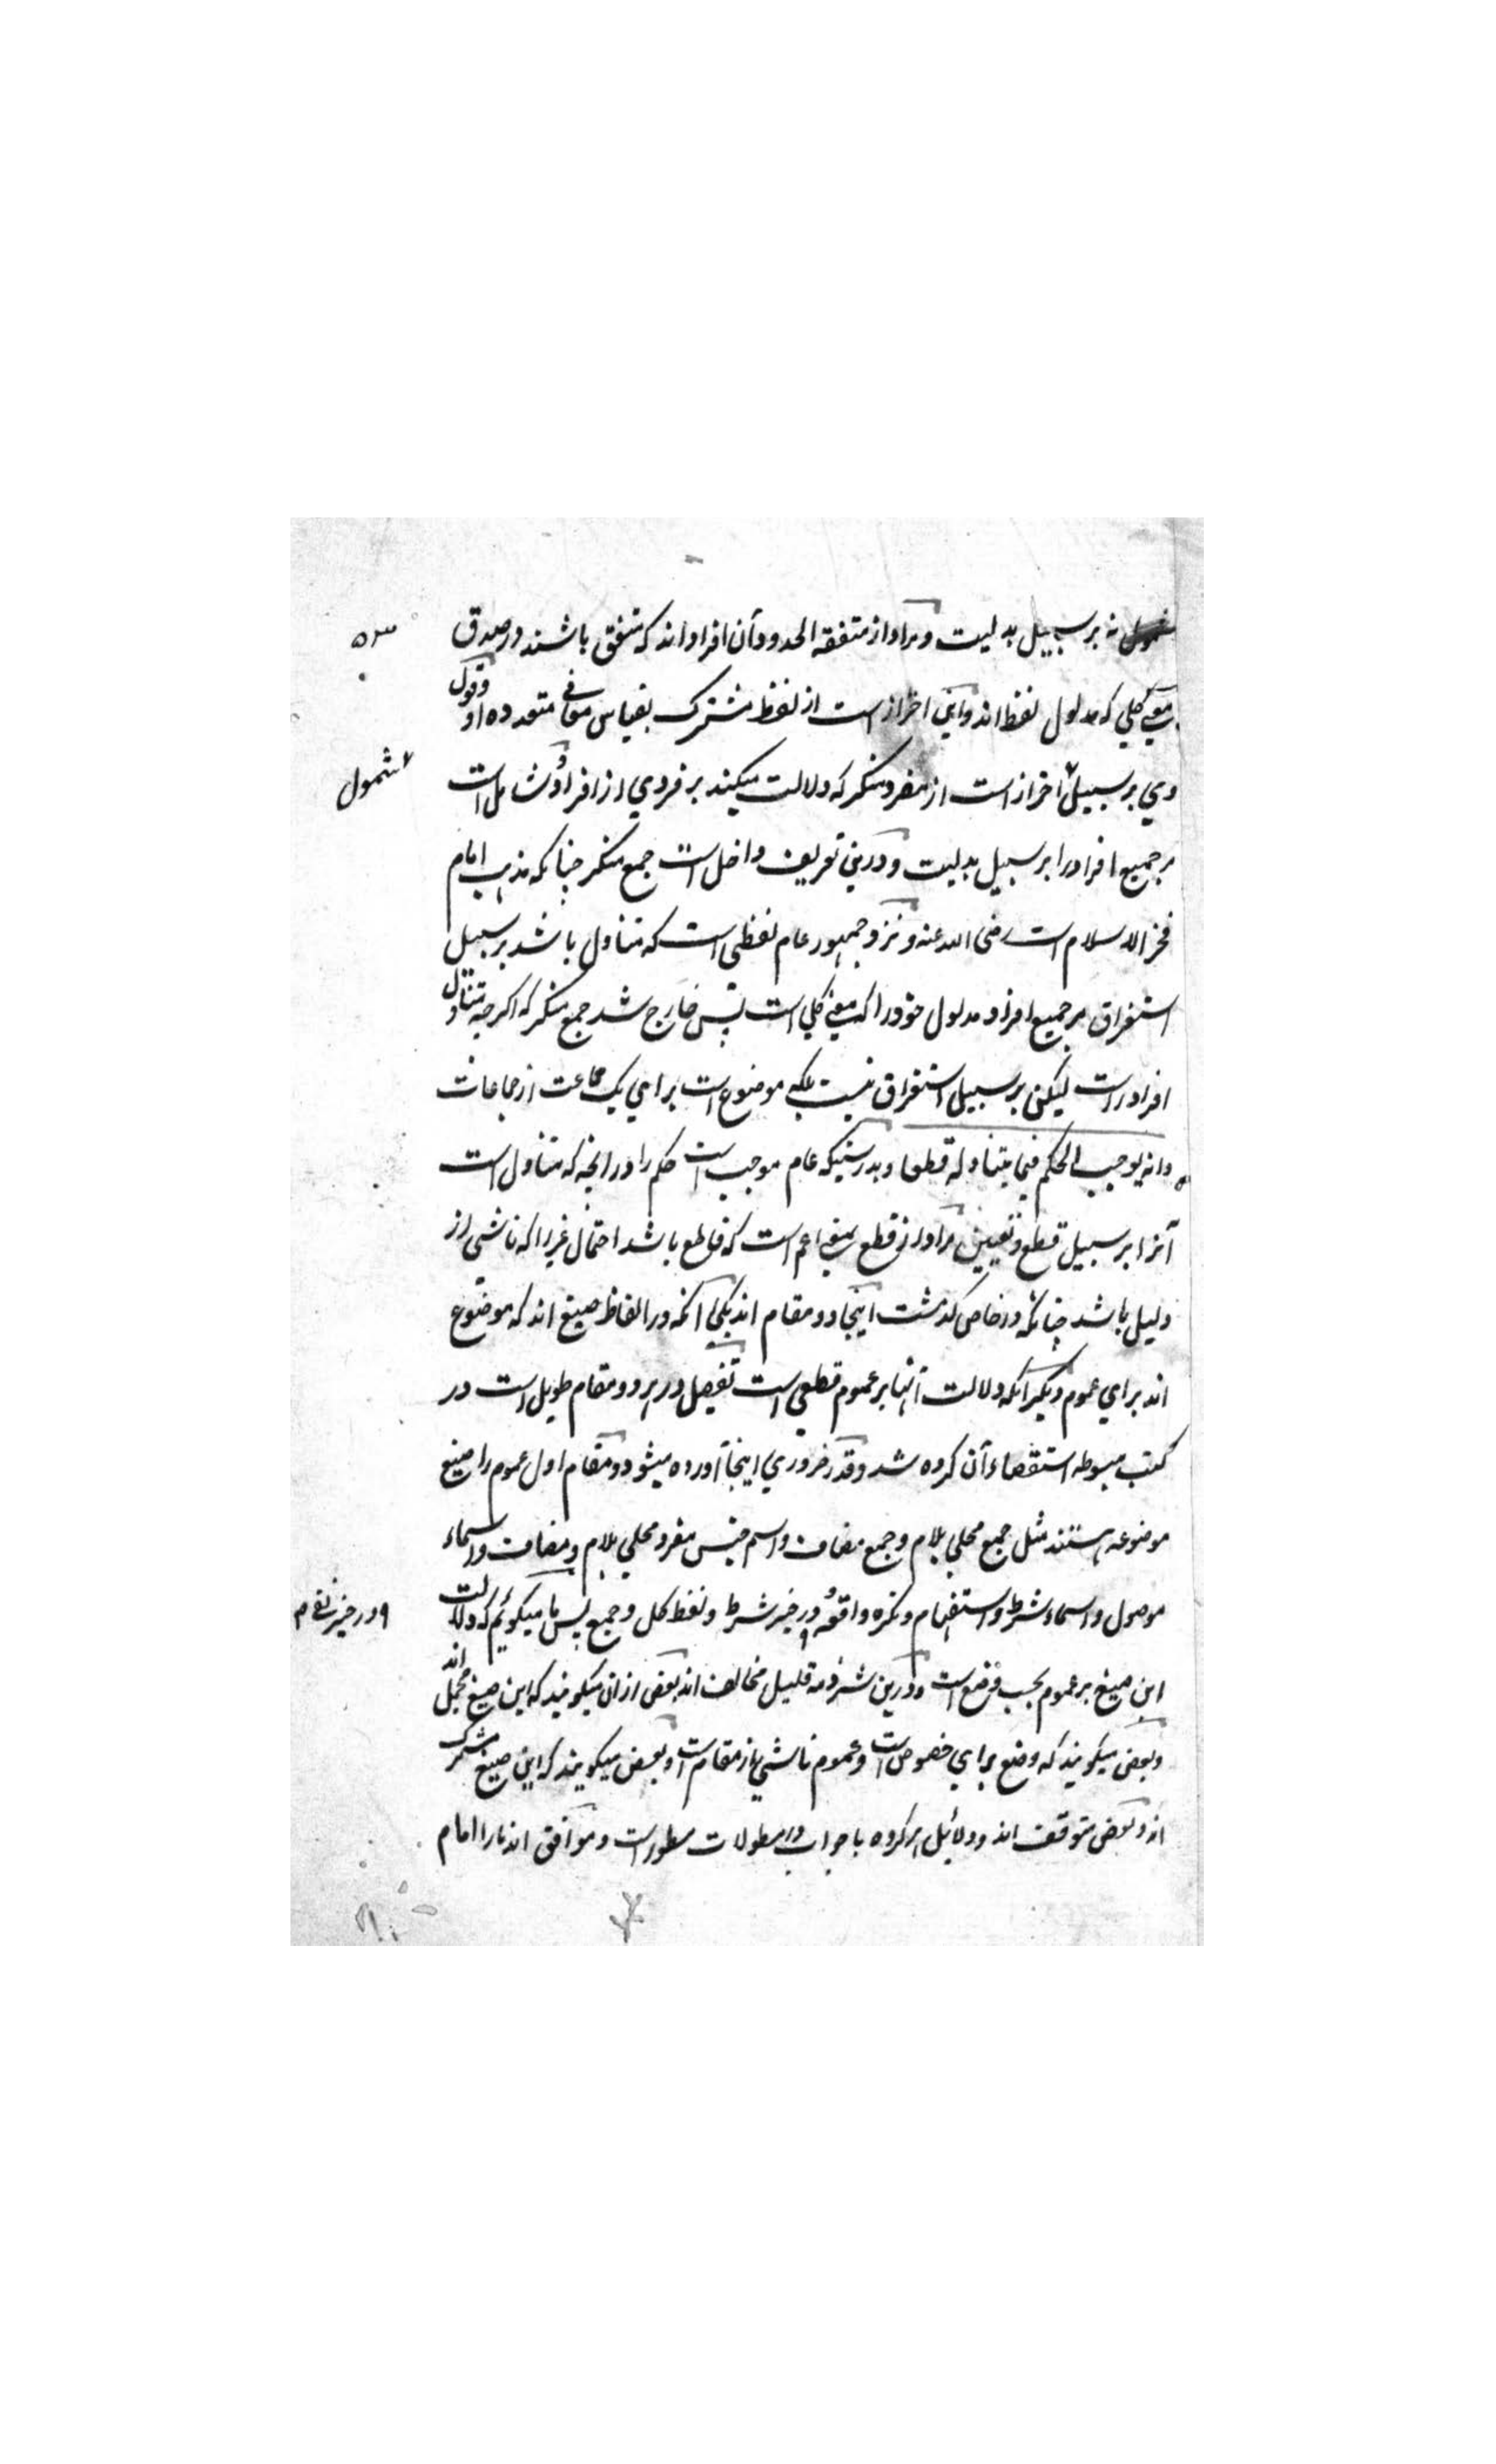 شمول نه بر سبیل بدلیت و مراد از متفقه الحدود آن افراد اند که متفق باشند در صدق
معنی کلی که مدلول لفظ اند و این احتراز است از لفظ مشترک بقیاس معانی متعدده او و قول
وی بر سبیل احتراز است از مفرد منکر که دلالت میکند بر فردی از افراد و شامل است
شمول
بر جمیع افراد را بر سبیل بدلیت و درین تعریف داخل است جمع منکر چنانکه مذهب امام
فخر الاسلام است رضی الله عنه و نزد جمهور عام لفظی است که متناول باشد بر سبیل
استغراق بر جمیع افراد مدلول خود را که معنی کلی است پس خارج شد جمع منکر که اگرچه متناول
افراد راست لیکن بر سبیل استغراق نیست بلکه موضوع است برای یک جماعت از جماعات
وانه یوجب الحکم فیما یتناوله قطعا و بدرستیکه عام موجب است حکم را در آنچه که متناول است
آنرا بر سبیل قطع و تعیین مراد از قطع بمعنی اعم است که قاطع باشد احتمال غیر را که ناشی از
دلیل باشد چنانکه در خاص گذشت اینجا دو مقام اند یکی آنکه در الفاظ صیغ اند که موضوع
اند برای عموم دیگر آنکه دلالت آنها بر عموم قطعی است تفصیل در هر دو مقام طویل است در
کتب مبسوطه استقصاء آن کرده شد و قدر ضروری اینجا آورده میشود و مقام اول عموم را صیغ
موضوعه هستند مثل جمع محلی بلام و جمع مضاف و اسم جنس مفرد محلی بلام و مضاف و اسماء
موصول و اسماء شرط و استفهام و نکره واقعه در خیر شرط و لفظ کل و جمیع پس ما میگوئیم که دلالت
این صیغ بر عموم بحسب وضع است و درین شرذمه قلیل مخالف اند بعض ازان میگویند که این صیغ مجمل اند
و بعض میگویند که وضع برای خصوص است و عموم ناشی از مقام است و بعض میگویند که این صیغ مشترک
اند و بعض متوقف اند و دلائل هر گروه با جواب در مطولات مسطور است و موافق اند ما را امام